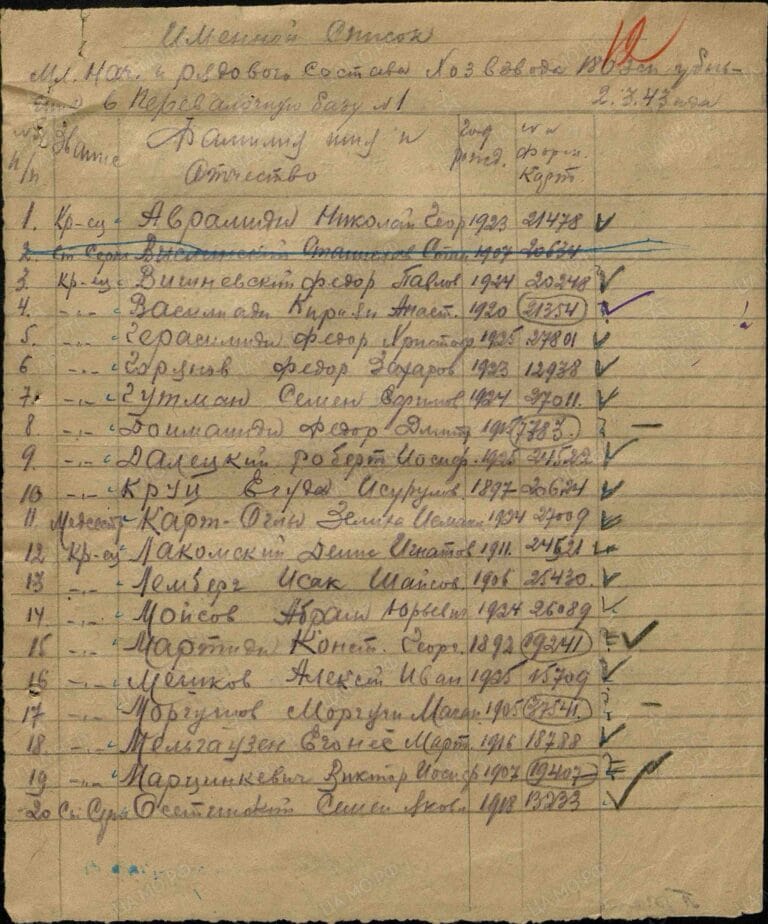 Именной Список
12
Мл. Нач. и рядового состава No 3 взвода 180 зсп убыв-
в Перевалочную базу №1 2.3.43 года
№№ п/п Звание Фамилия имя и Отчество Год рожд. №№ Форм. Карт.
1. Кр-ец Аврамиди Николай Геор 1923 21478
2. Ст Серж Станислав 1907 20634
3. Кр-ец Вишневский Федор Павлов 1924 20248
4. -"- Василиади Кирьяк Анаст. 1920 21354 !
5. -"- Герасимиди Федор Христоф 1925 27801
6 -"- Горянов Федор Захаров 1923 12938
7. -"- Гутман Семен Ефимов 1924 27011.
8 -"- Федор Дмит 7783.
9. -"- Далецкий Роберт Иосиф. 1925
10 -"- Круц Егуда 1897 20624
11 Медсестр Карт-Оглы 1924 27009
12 Кр-ец Лакомский Денис Игнатов 1911. 24521
13 -"- Лемберг Исак 1906 25430.
14 -"- Мойсов Абрам Юрьевич 1924 26089
15 -"- Мартиди Конст. Георг. 1892 19241
16 -"- Мешков Алексей Иван 1925 15709
17 -"- 1905 27541.
18. -"- Мельгаузен Март. 1916 18788
19 -"- Марцинкевич Виктор Иосиф 1907 19407
20 Ст Серж Семен Яковл 1918 13233